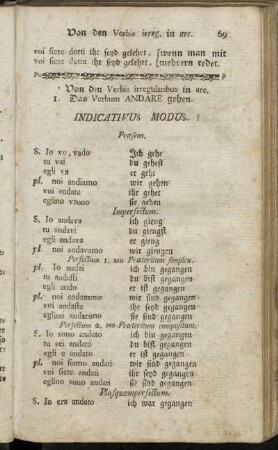 Von den Verbis irreg. in are. 69
voi siete dotti ihr seyd gelehrt, (wenn man mit
voi siete dotte ihr seyd gelehrt, (mehrern redet.
Von den Verbis irregularibus in are,
1. Das Verbum ANDARE gehen.
INDICATIVUS MODUS.
Præsens.
S. Io vo, vado Ich gehe
tu vai du gehest
egli va er geht
pl. noi andiamo wir gehen
voi andate ihr gehet
eglino vanno sie gehen
Imperfectum.
S. Io andava ich gieng
tu andavi du giengst
egli andava er gieng
pl. noi andavamo wir giengen
Perfectum 1. seu Præteritum simplex.
S. Io andai ich bin gegangen
tu andasti du bist gegangen
egli andò er ist gegangen
pl. noi andammo wir sind gegangen
voi andaste ihr seyd gegangen
eglino andarono sie sind gegangen
Perfectum 2. seu Præteritum compositum.
S. Io sono andato ich bin gegangen
tu sei andato du bist gegangen
egli è andato er ist gegangen
pl. noi siamo andati wir sind gegangen
voi siete andati ihr seyd gegangen
eglino sono andati sie sind gegangen
Plusquamperfectum.
S. Io era andato ich war gegangen